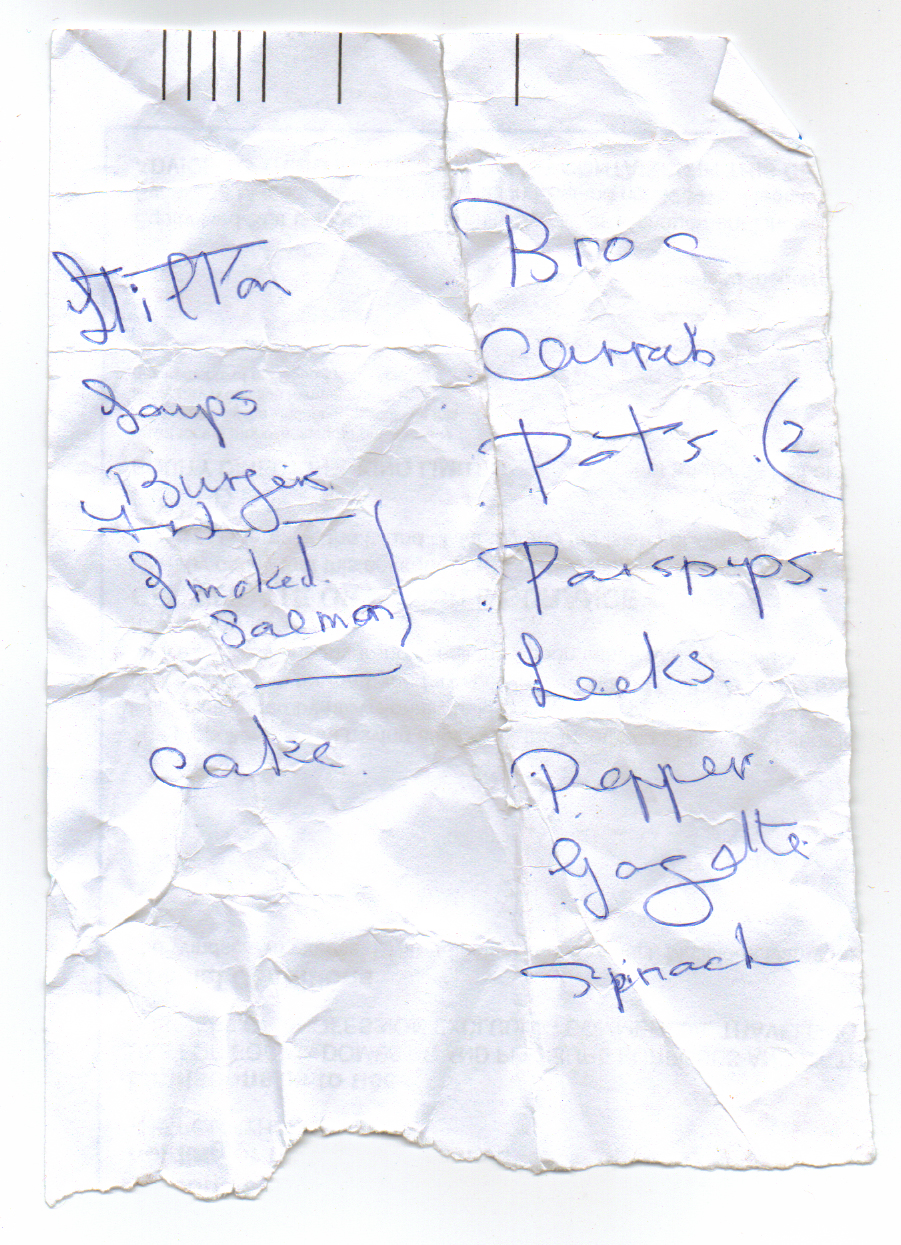 Stilton
Soups
Burgers
Smoked
Salmon
cake.
Broc
Carrots
Pots (2
Parspyps.
Leeks.
Pepper.
Gogette
Spinach